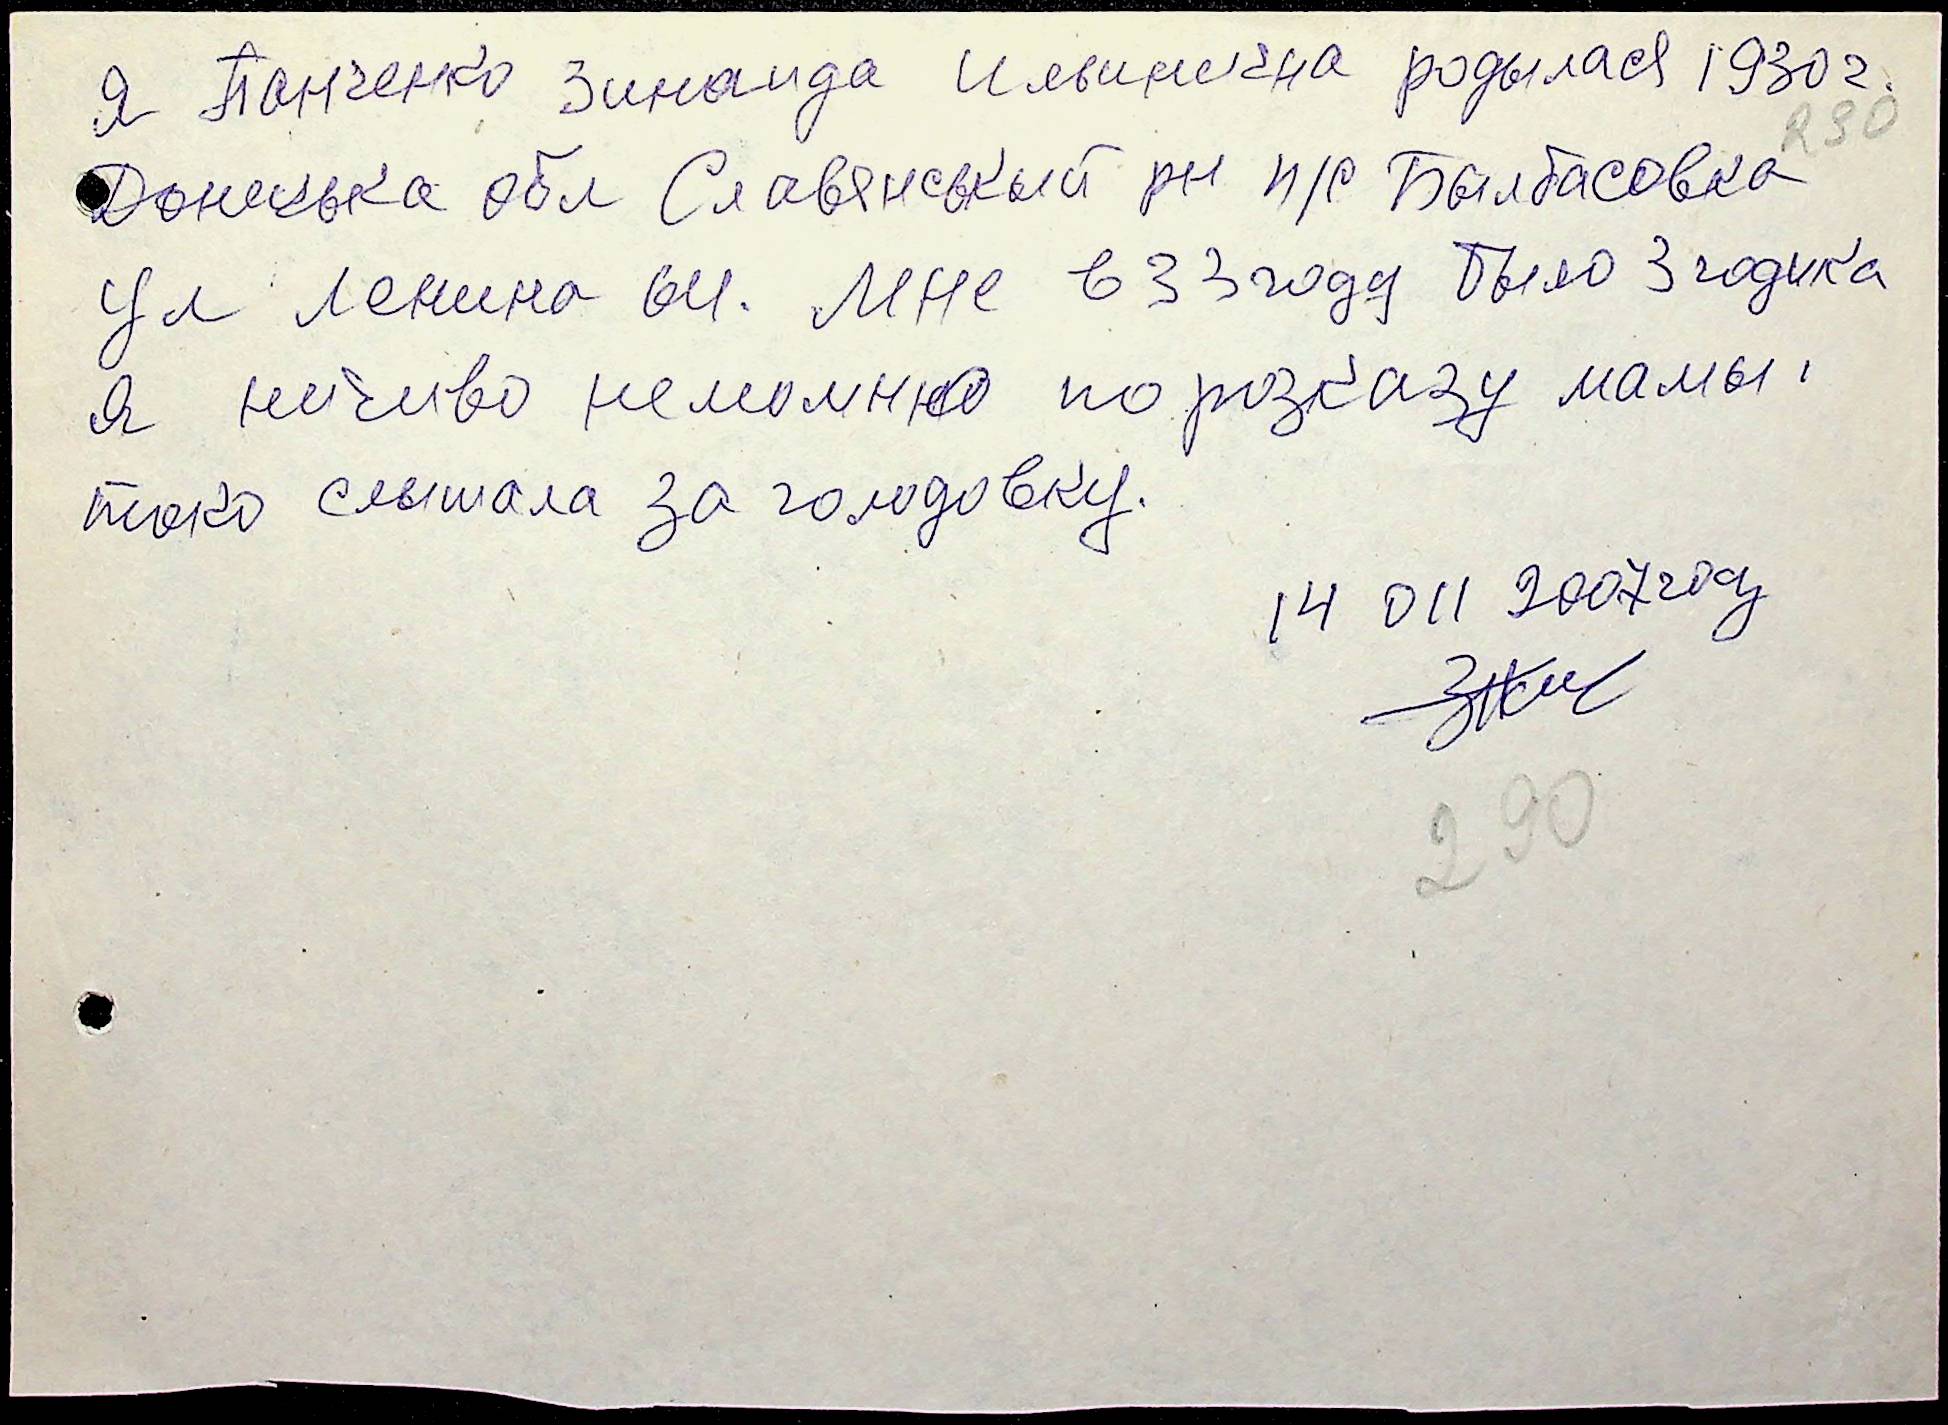 Я Панченко Зинаида Ильинична родылася 1930 г.
290
Донецька обл Славянськый рн п/с Былбасовка
ул Ленина 61. Мне в 33 году было 3 годика
Я ничиво непомню по розказу мамы
токо слышала за голодовку.
14 011 2007 году
290